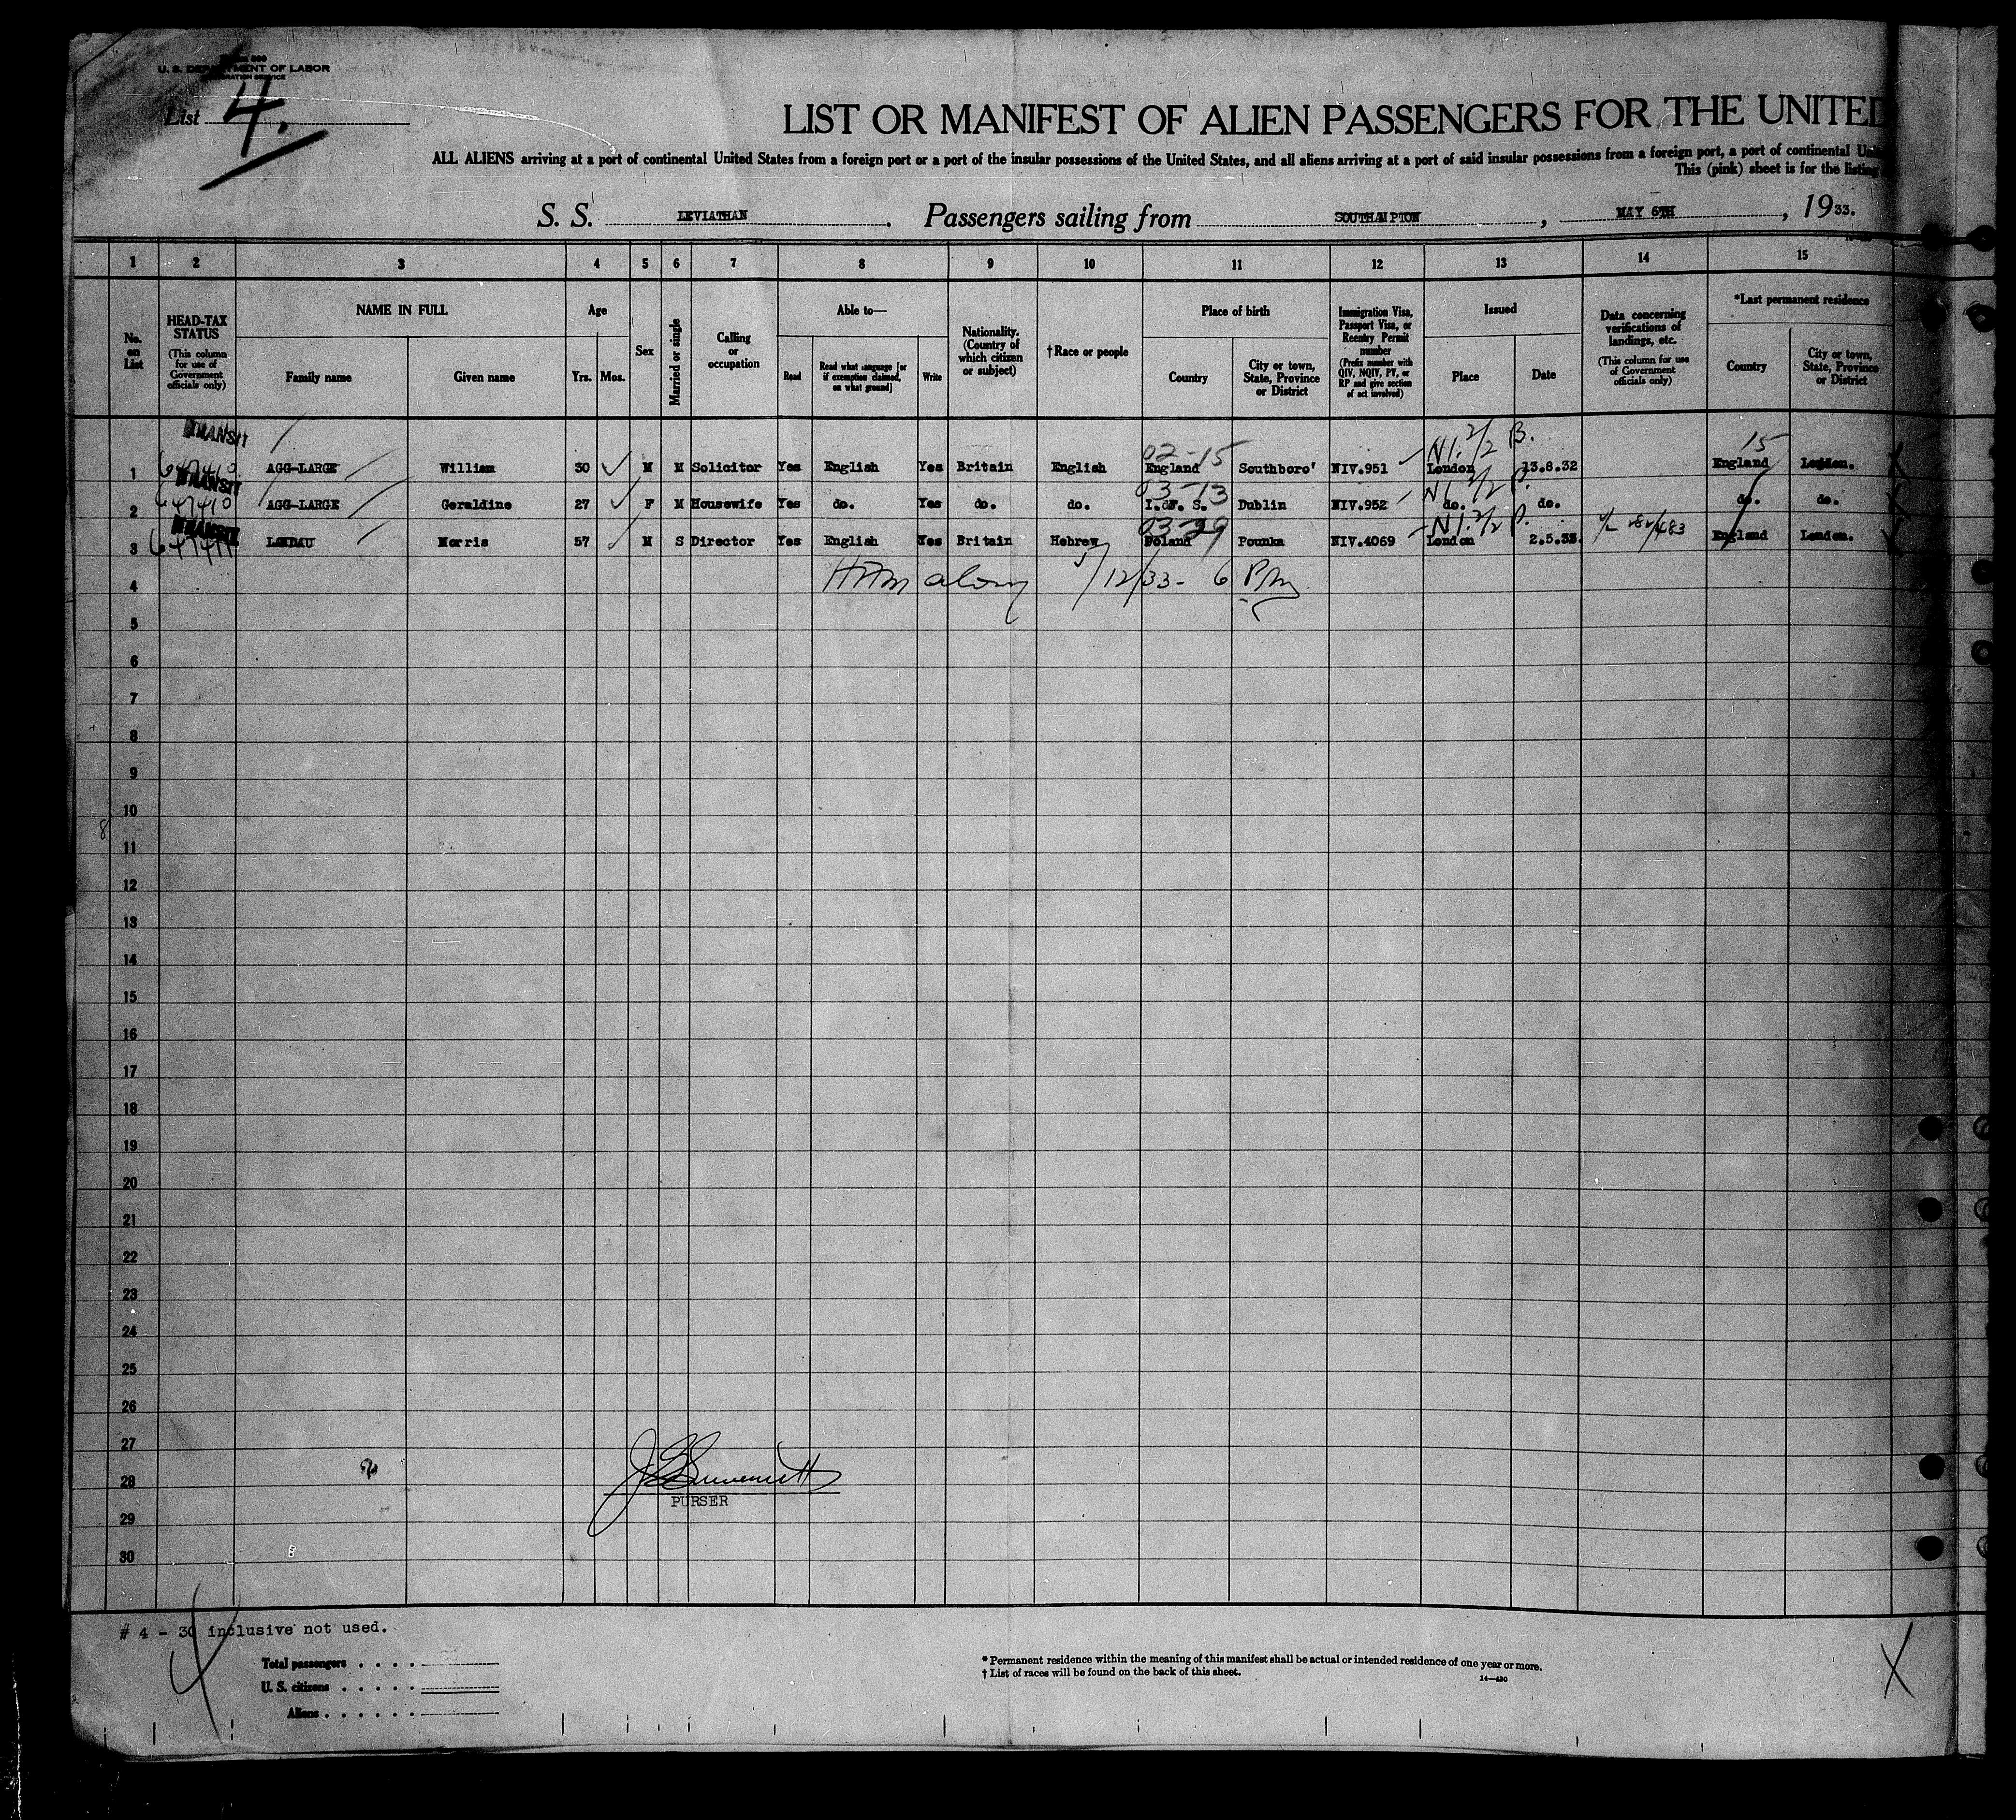 U. S. DEPARTMENT OF LABOR
List 4.
LIST OR MANIFEST OF ALIEN PASSENGERS FOR THE UNITED
ALL ALIENS arriving at a port of continental United States from a foreign port or a port of the insular possessions of the United States, and all aliens arriving at a port of said insular possessions from a foreign port, a port of continental
This (pink) sheet is for the listing
S. S. LEVIATHAN. Passengers sailing from SOUTHAMPTON, MAY 6TH, 1933.
1 2 3 4 5 6 7 8 9 10 11 12 13 14 15
No. on List
HEAD-TAX STATUS (This column for use of Government officials only)
NAME IN FULL
Family name Given name
Age
Yrs. Mos.
Sex
Married or single
Calling or occupation
Able to—
Read Read what language [or if exemption claimed, on what ground] Write
Nationality. (Country of which citizen or subject)
†Race or people
Place of birth
Country City or town, State, Province or District
Immigration Visa, Passport Visa, or Reentry Permit number (Prefix number with QIV, NQIV, PV, or RP and give section of act involved)
Issued
Place Date
Data concerning verifications of landings, etc. (This column for use of Government officials only)
*Last permanent residence
Country City or town, State, Province or District
TRANSIT
02-15 15
1 AGG-LARGE William 30 M M Solicitor Yes English Yes Britain English England Southboro' NIV.951 London 13.8.32 England London.
TRANSIT
03-13
2 AGG-LARGE Geraldine 27 F M Housewife Yes do. Yes do. do. I.F.S. Dublin NIV.952 do. do. do. do.
TRANSIT
03-29
3 LANDAU Morris 57 M S Director Yes English Yes Britain Hebrew Poland Pounka NIV.4069 London 2.5.33. England London.
4 5/12/33 - 6 PM
5
6
7
8
9
10
11
12
13
14
15
16
17
18
19
20
21
22
23
24
25
26
27
28
PURSER
29
30
# 4 - 30 inclusive not used.
Total passengers
U. S. citizens
Aliens
* Permanent residence within the meaning of this manifest shall be actual or intended residence of one year or more.
† List of races will be found on the back of this sheet.
14—430